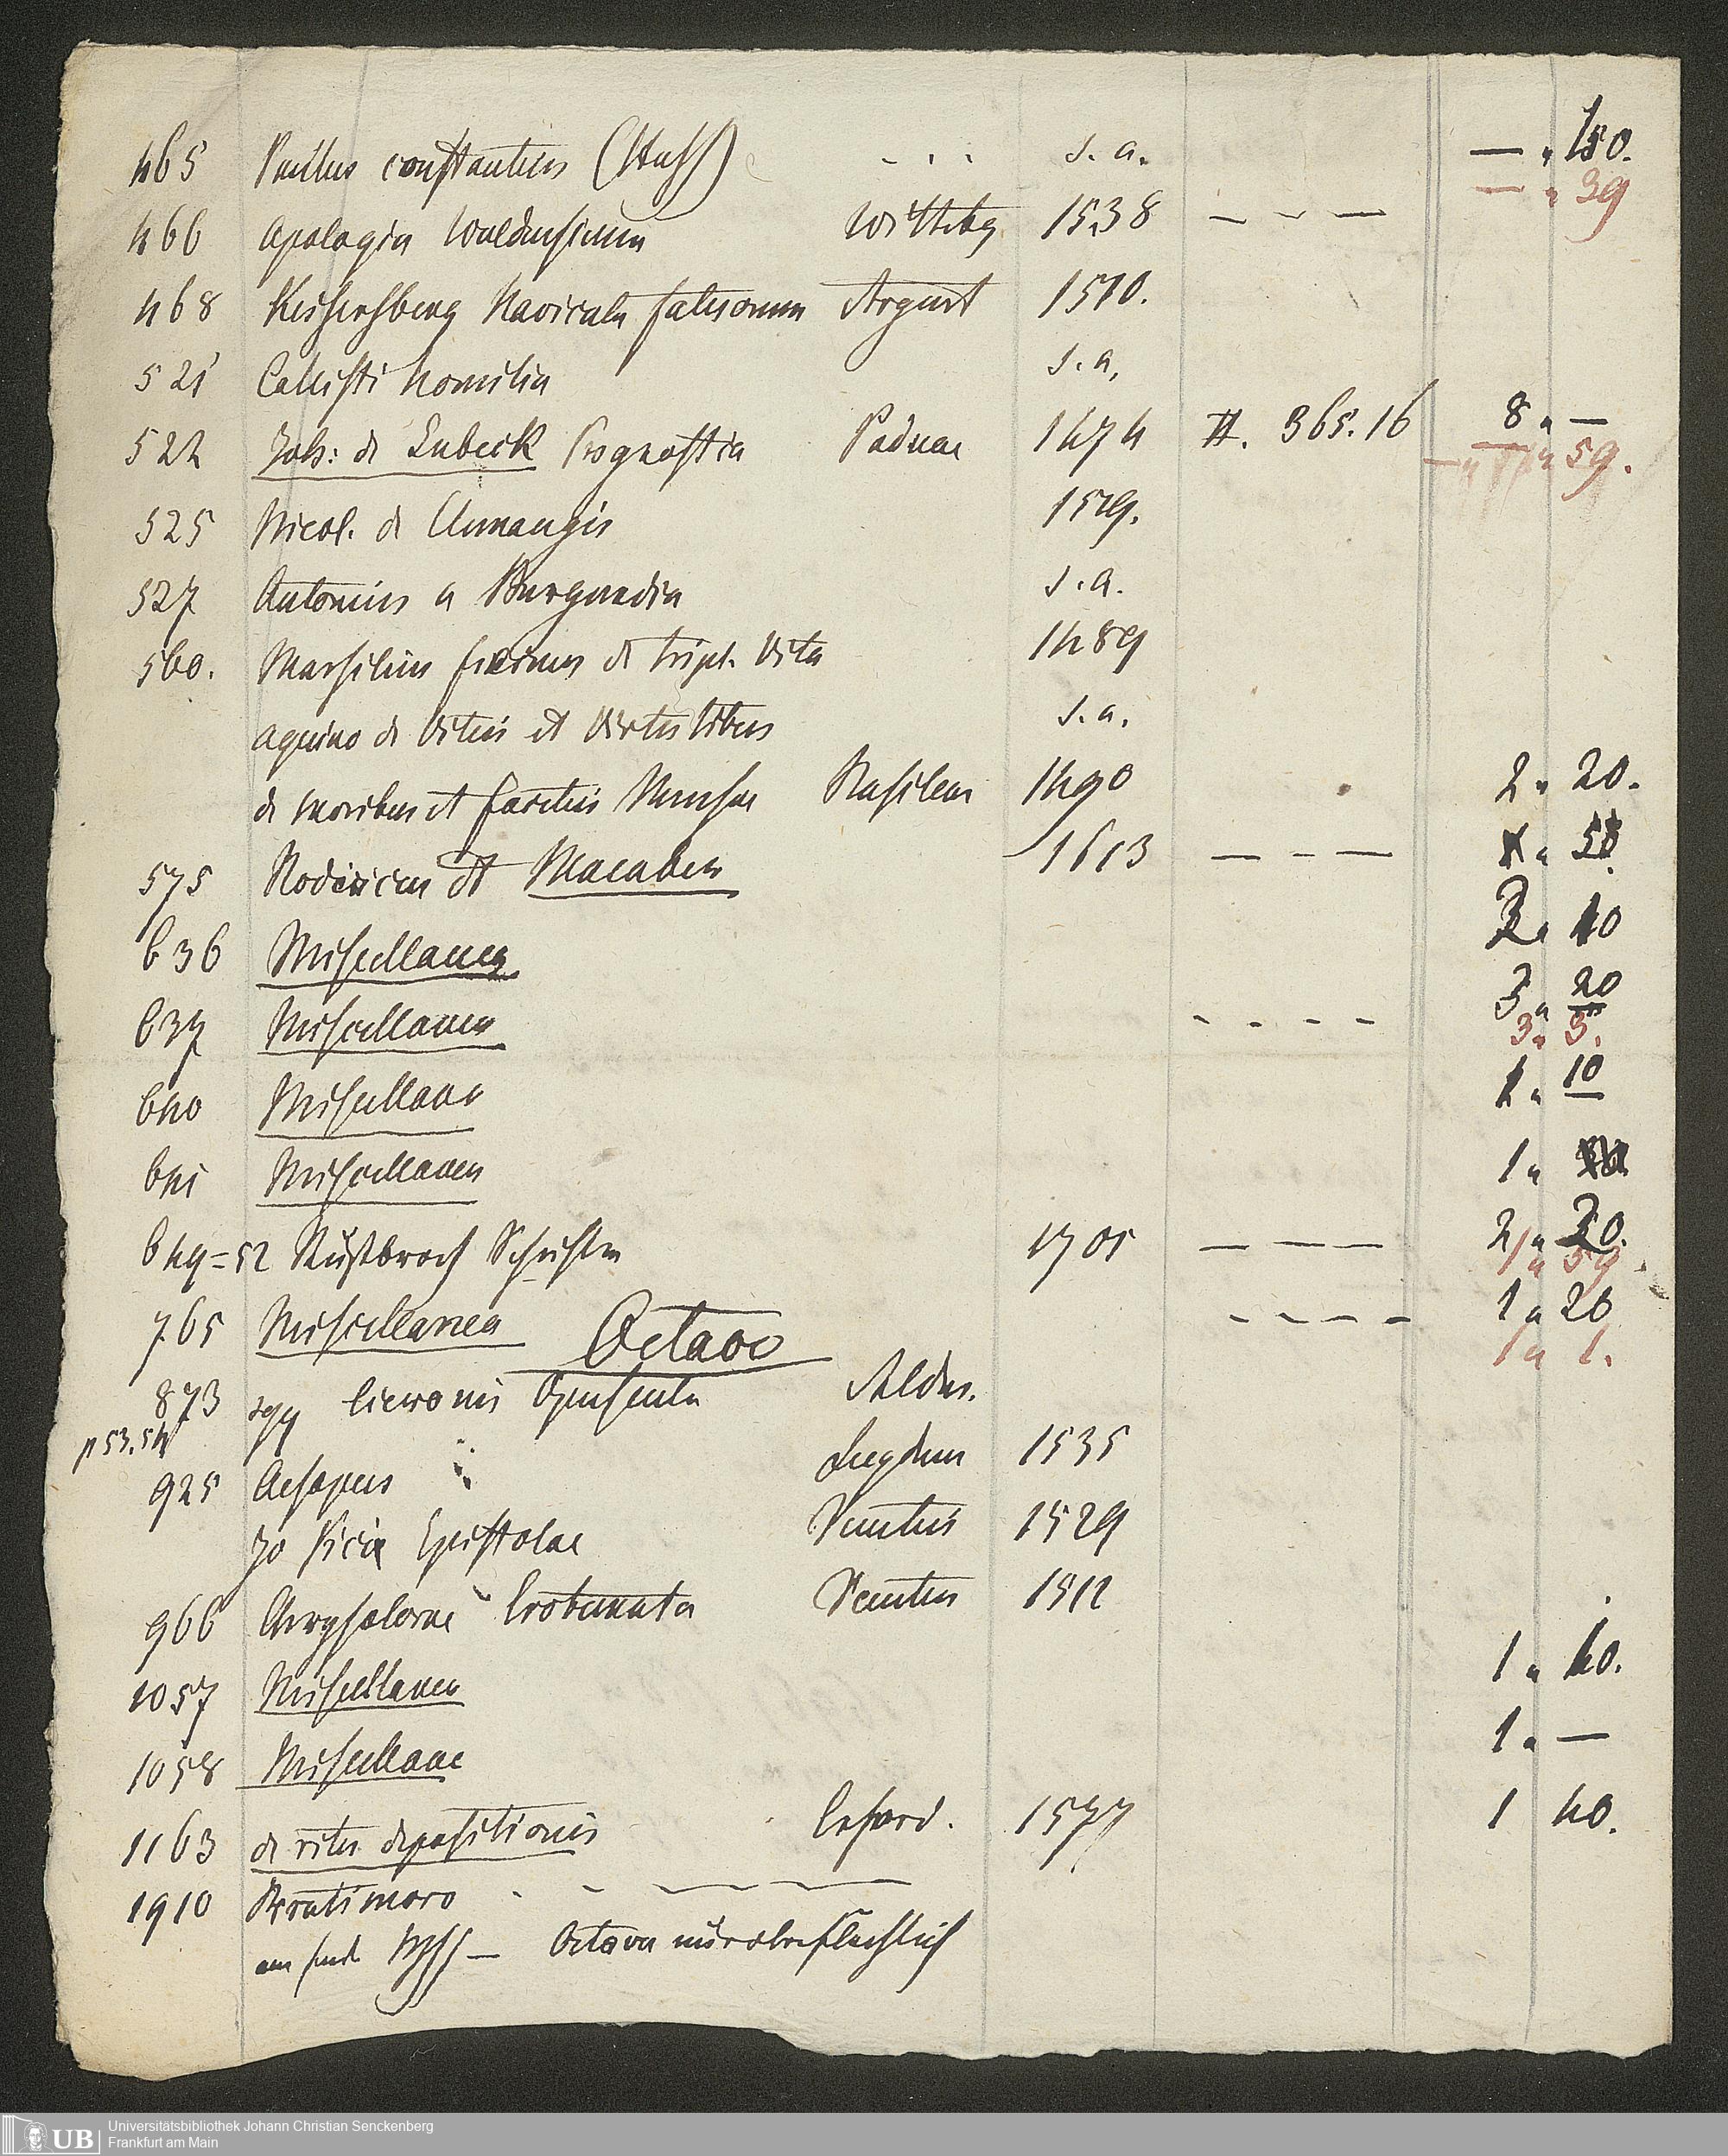 465 Paulus constantius (Huss) - . . s. a. — „ 150.
— „ 39
466 Apologia Waldensium Wittebg 1538 — - —
468 Keisersberg Navicula fatuorum Argent 1510.
521 Calixti Homilia s. a.
522 Joh: de Lubeck Prognostica Paduae 1474 H. 365. 16 8 „ —
59.
525 Nicol. de Clemangis 1519.
527 Antonius a Burgundia s. a.
560. Marsilius ficinus de tripl. Vita 1489
Aquino de Vitiis et Virtutibus s. a.
de moribus et facetiis Mensae Basileae 1490 2 „ 20.
575 Rodericus et Macaber 1613 — - —
636 Miscellanea 40
637 Miscellanea - - - - 3 „ 20
3 „ 3.
640 Miscellane 1 „ 10
641 Miscellanea 1 „
649=52 Schriften 1705 — — — 2 „ 20.
1 „ 59
765 Miscellanea - - - - 1 „ 20
1 „ 1.
Octavo
873 sqq Ciceronis Opuscula Aldus.
p 53. 54
925 Aesopus Lugdun 1535
Jo Pici Epistolae Venetiis 1529
966 Chrysolorae Erotemata Venetiis 1512
1057 Miscellanea 1 „ 40.
1058 Miscellane 1 „ —
1163 de ritu depositionis Erford. 1577 1 40.
1910 Pratimoro - - — — —
am Ende Mss — Octava
UB Universitätsbibliothek Johann Christian Senckenberg
Frankfurt am Main